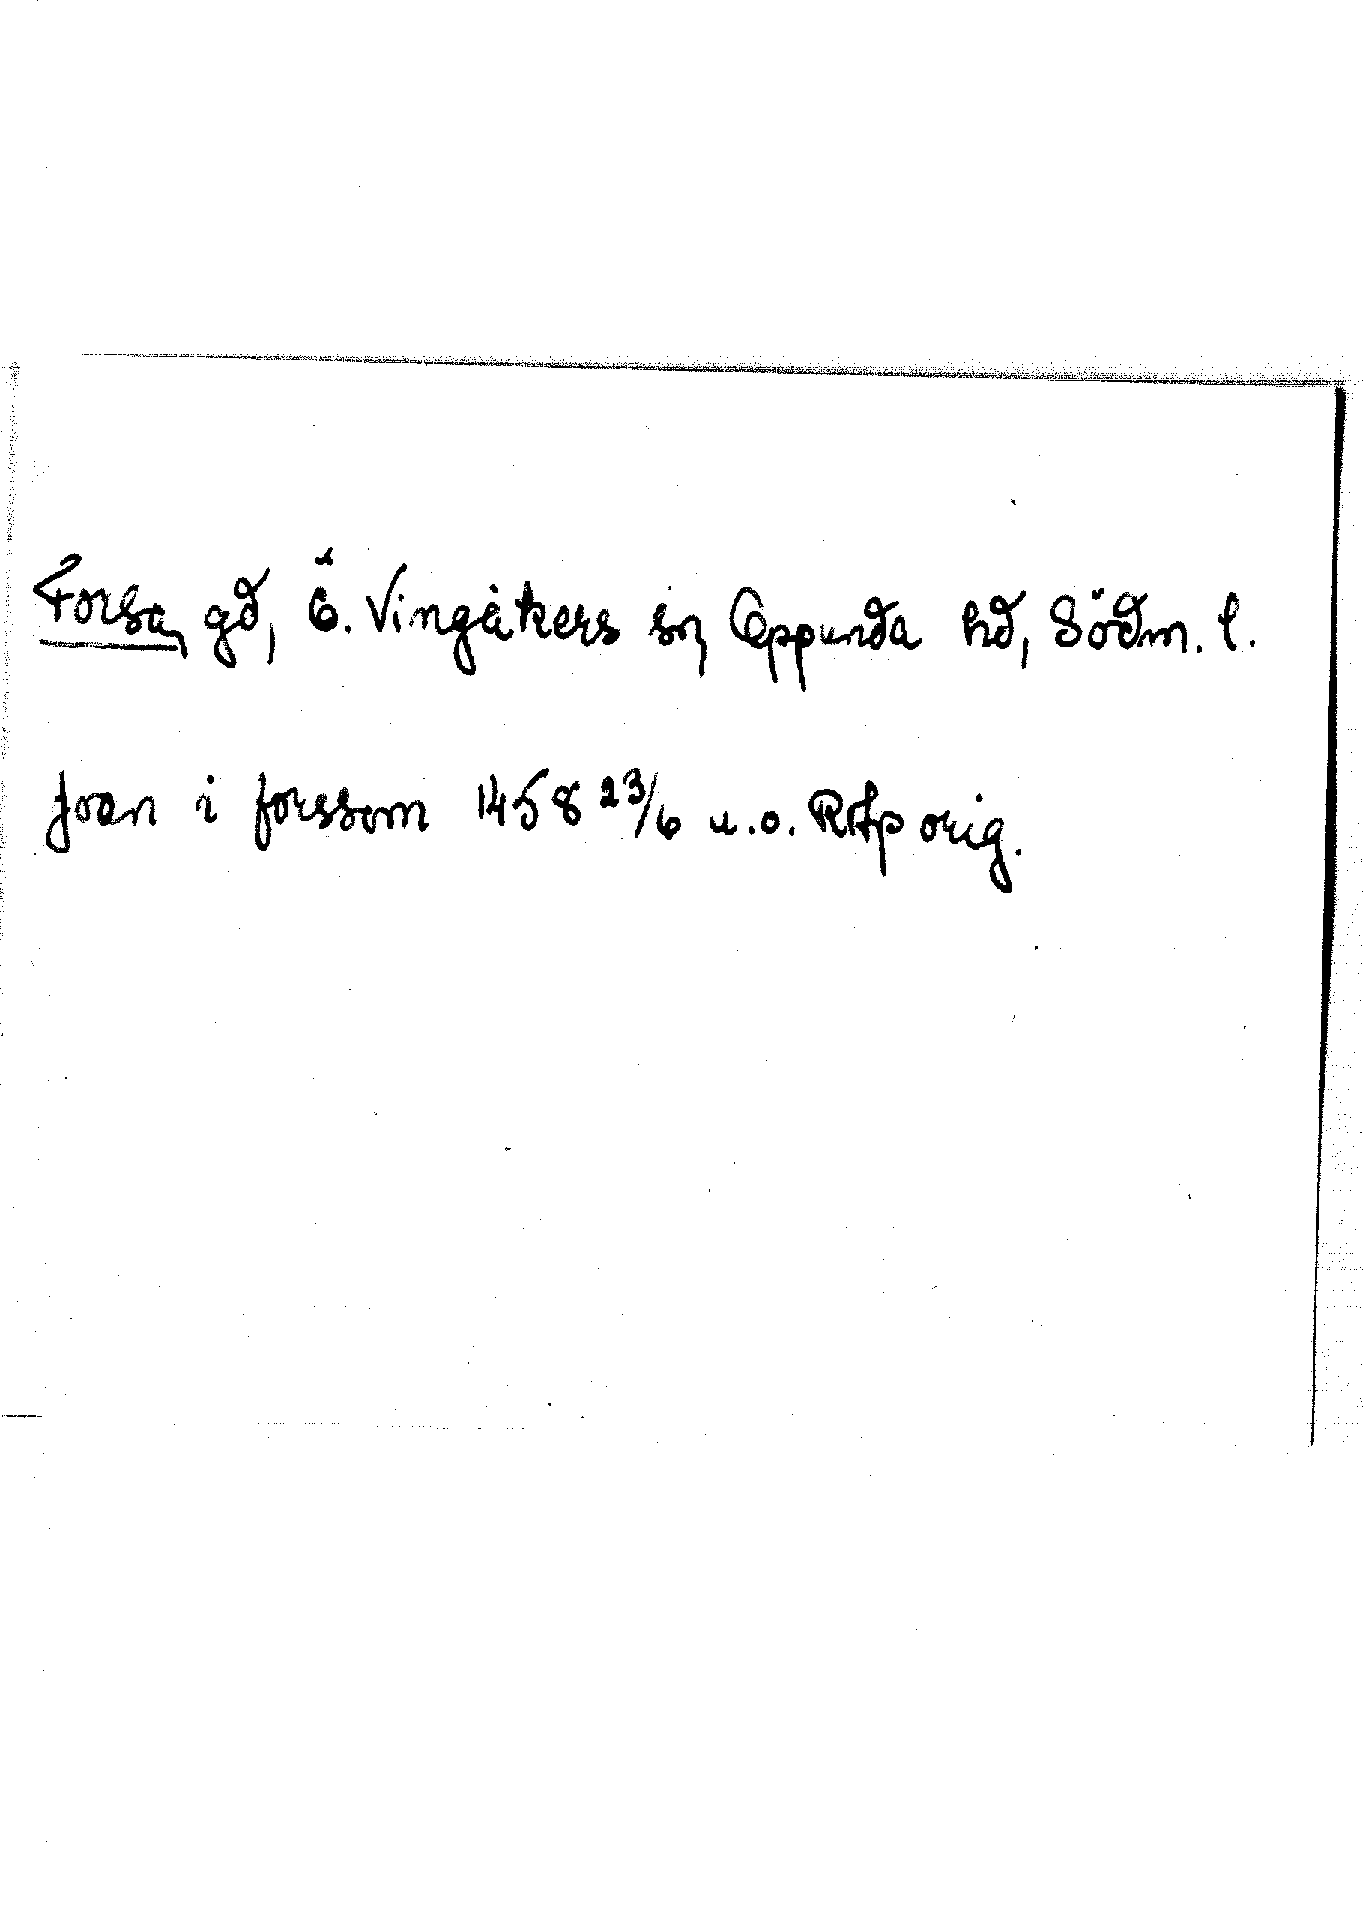 Forsa, gd, Ö. Vingåkers sn, Oppunda hd, Södm. l.
joan i forssom 1458 23/6 u.o. RAp orig.